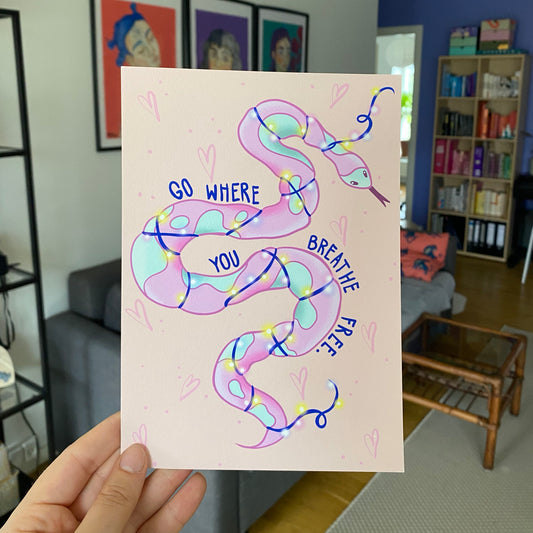 GO WHERE
YOU
BREATHE
FREE.